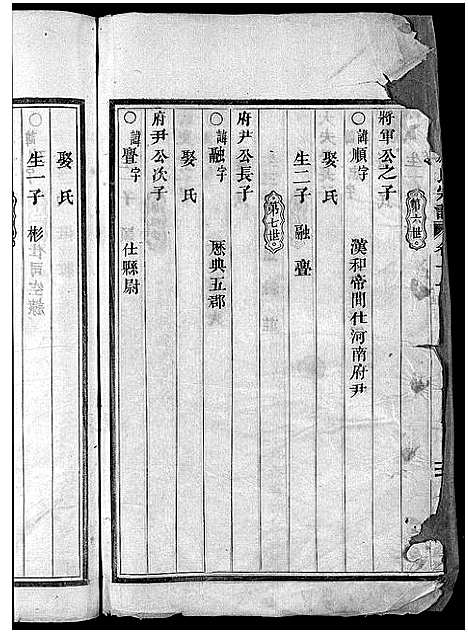 第六世
將軍公之子
○諱順字　漢和帝間仕河南府尹
娶氏
生二子　融　疊
第七世
府尹公長子
○諱融字　歷典五郡
娶氏
府尹公次子
○諱疊字　仕縣尉
娶氏
生一子　彬